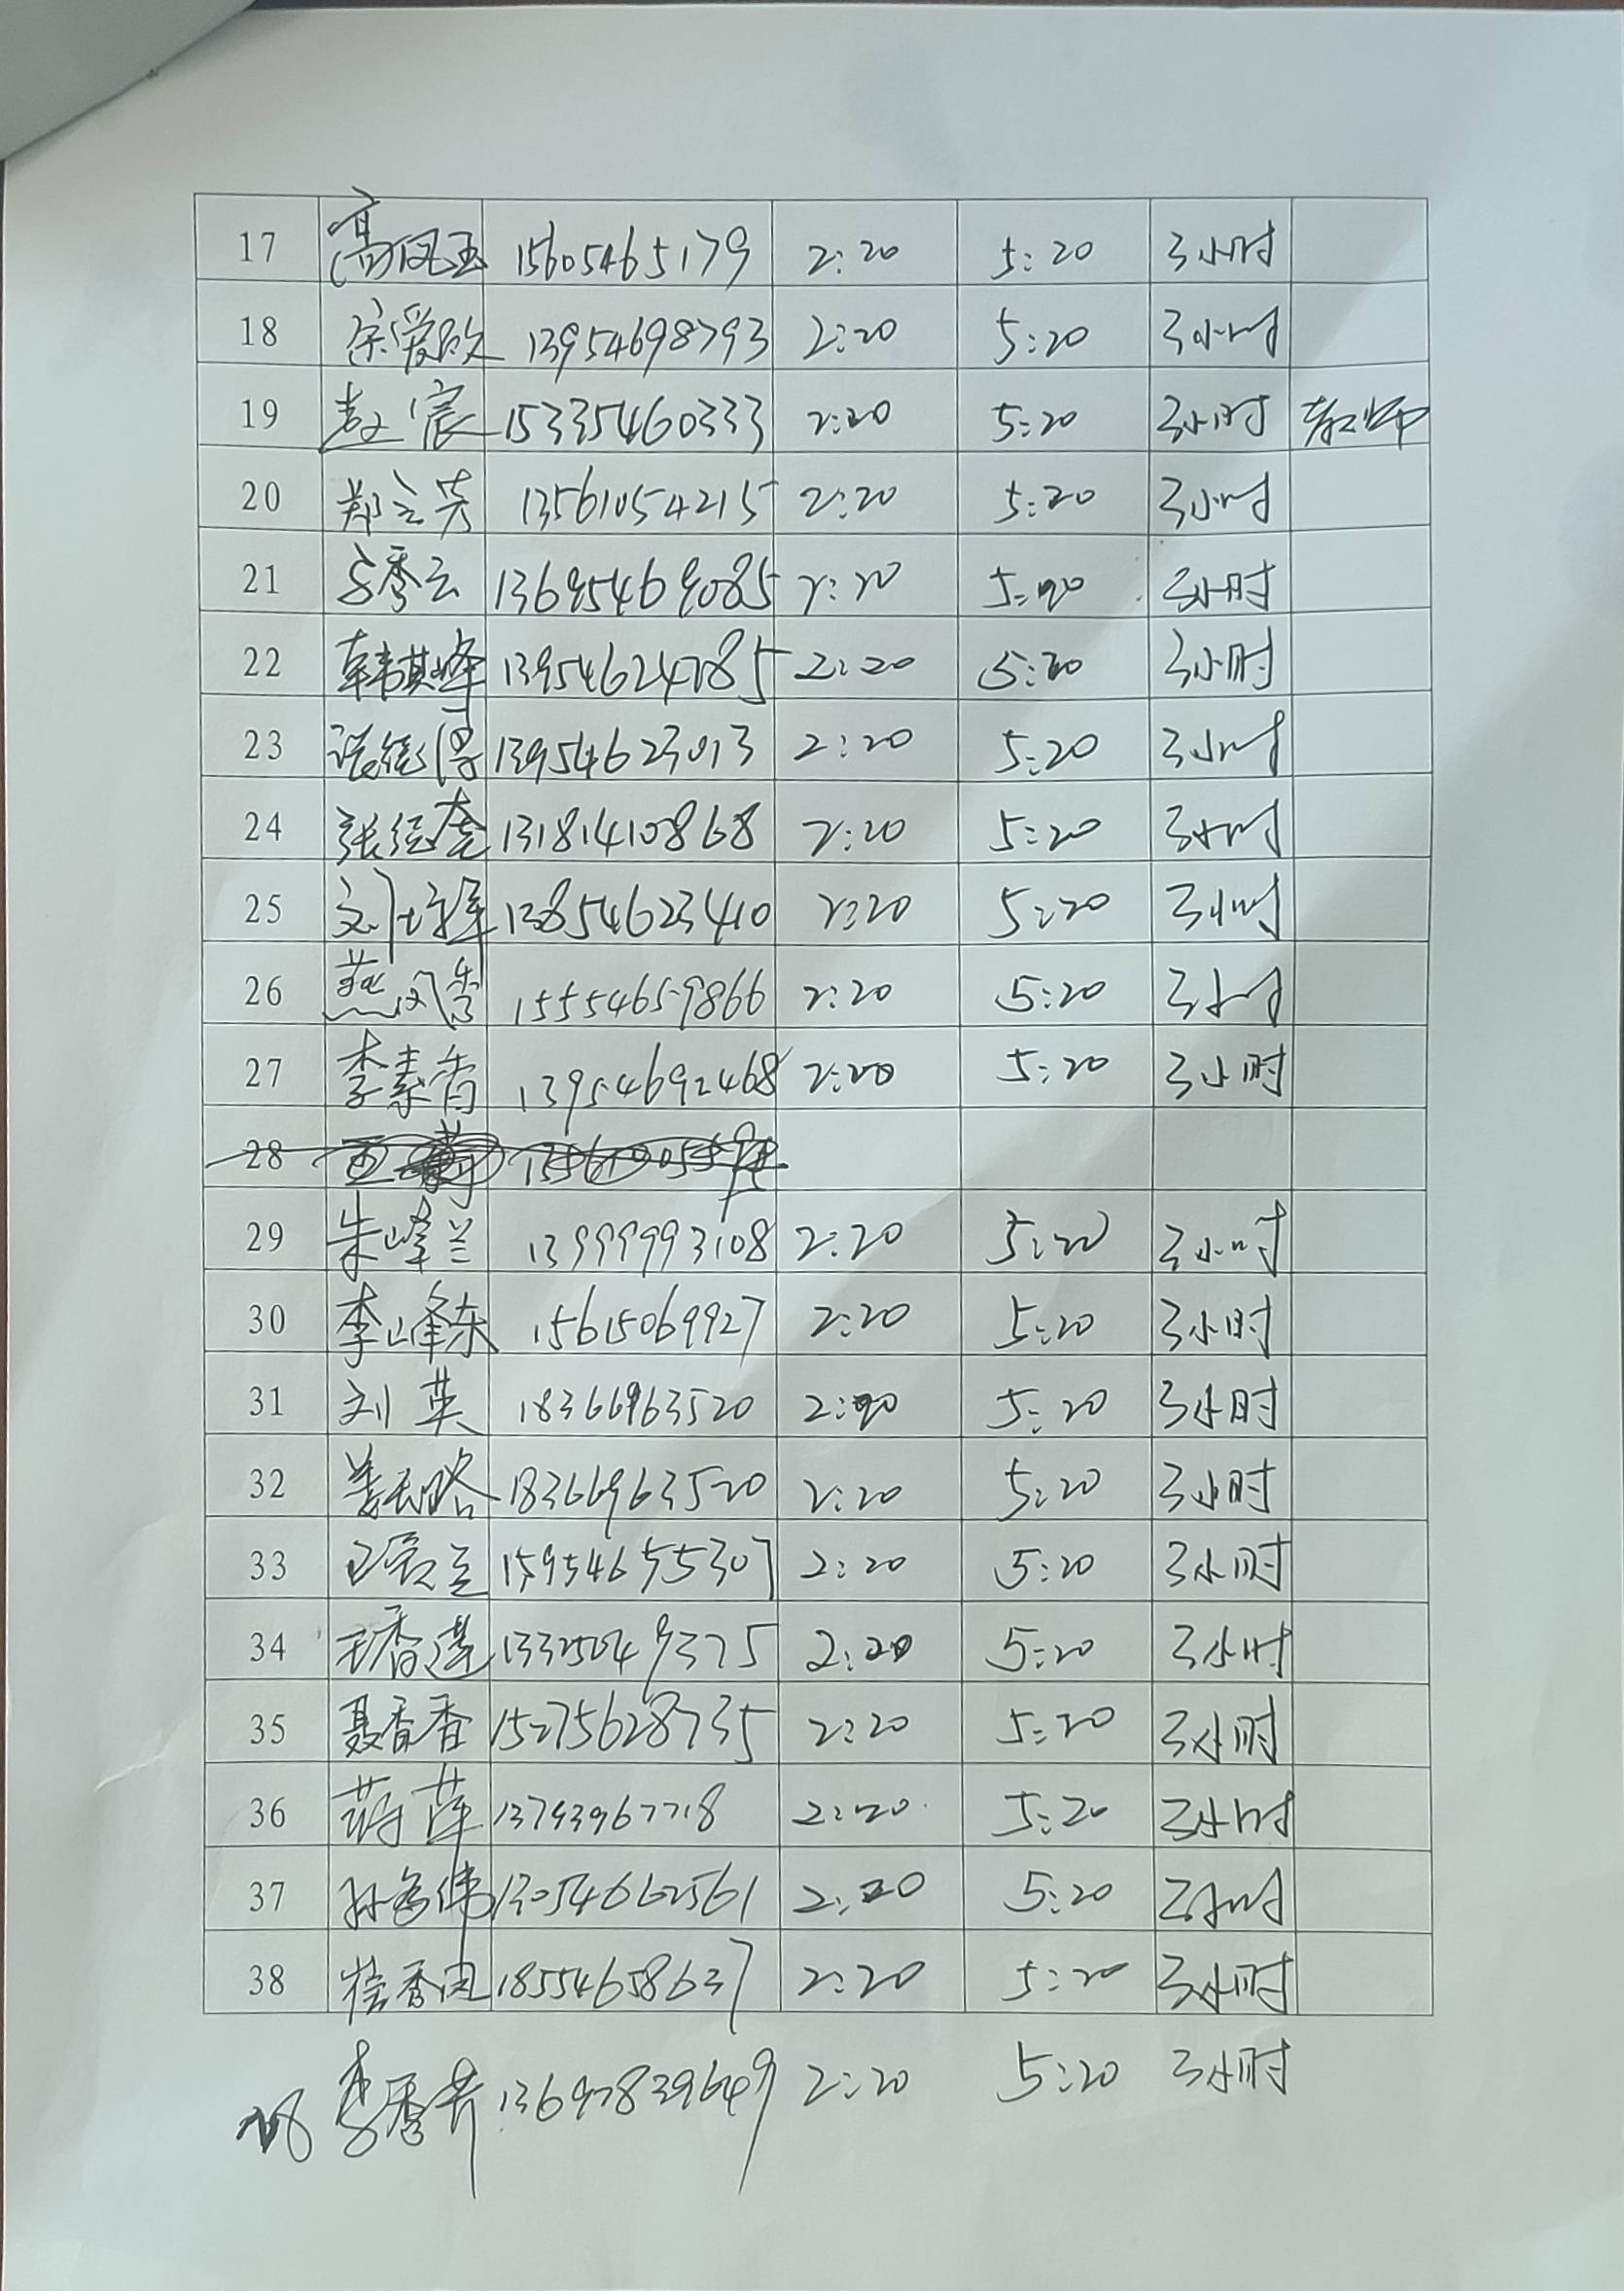 17 高凤玉 15605465179 2:20 5:20 3小时
18 宋爱欣 13954698793 2:20 5:20 3小时
19 赵宸 15335460333 2:20 5:20 3小时 教师
20 郑立芳 13561054215 2:20 5:20 3小时
21 李秀云 13695469085 2:20 5:20 3小时
22 韩其峰 13954624785 2:20 5:20 3小时
23 13954623013 2:20 5:20 3小时
24 张经奎 13181410868 2:20 5:20 3小时
25 13854623410 2:20 5:20 3小时
26 燕凤香 15554659866 2:20 5:20 3小时
27 李素香 13954692468 2:20 5:20 3小时
28
29 朱峰兰 13999993108 2:20 5:20 3小时
30 李峰东 15615069927 2:20 5:20 3小时
31 刘英 18366963520 2:20 5:20 3小时
32 18366963520 2:20 5:20 3小时
33 15954655307 2:20 5:20 3小时
34 王香莲 13325049375 2:20 5:20 3小时
35 聂香香 15275628735 2:20 5:20 3小时
36 蒋萍 13793967718 2:20 5:20 3小时
37 13054662561 2:20 5:20 3小时
38 18554658637 2:20 5:20 3小时
28 李秀芹 13697839649 2:20 5:20 3小时